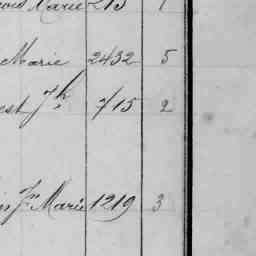 Marie 213 1
Marie 2432 5
est Jh 715 2
Jn Marie 1219 3